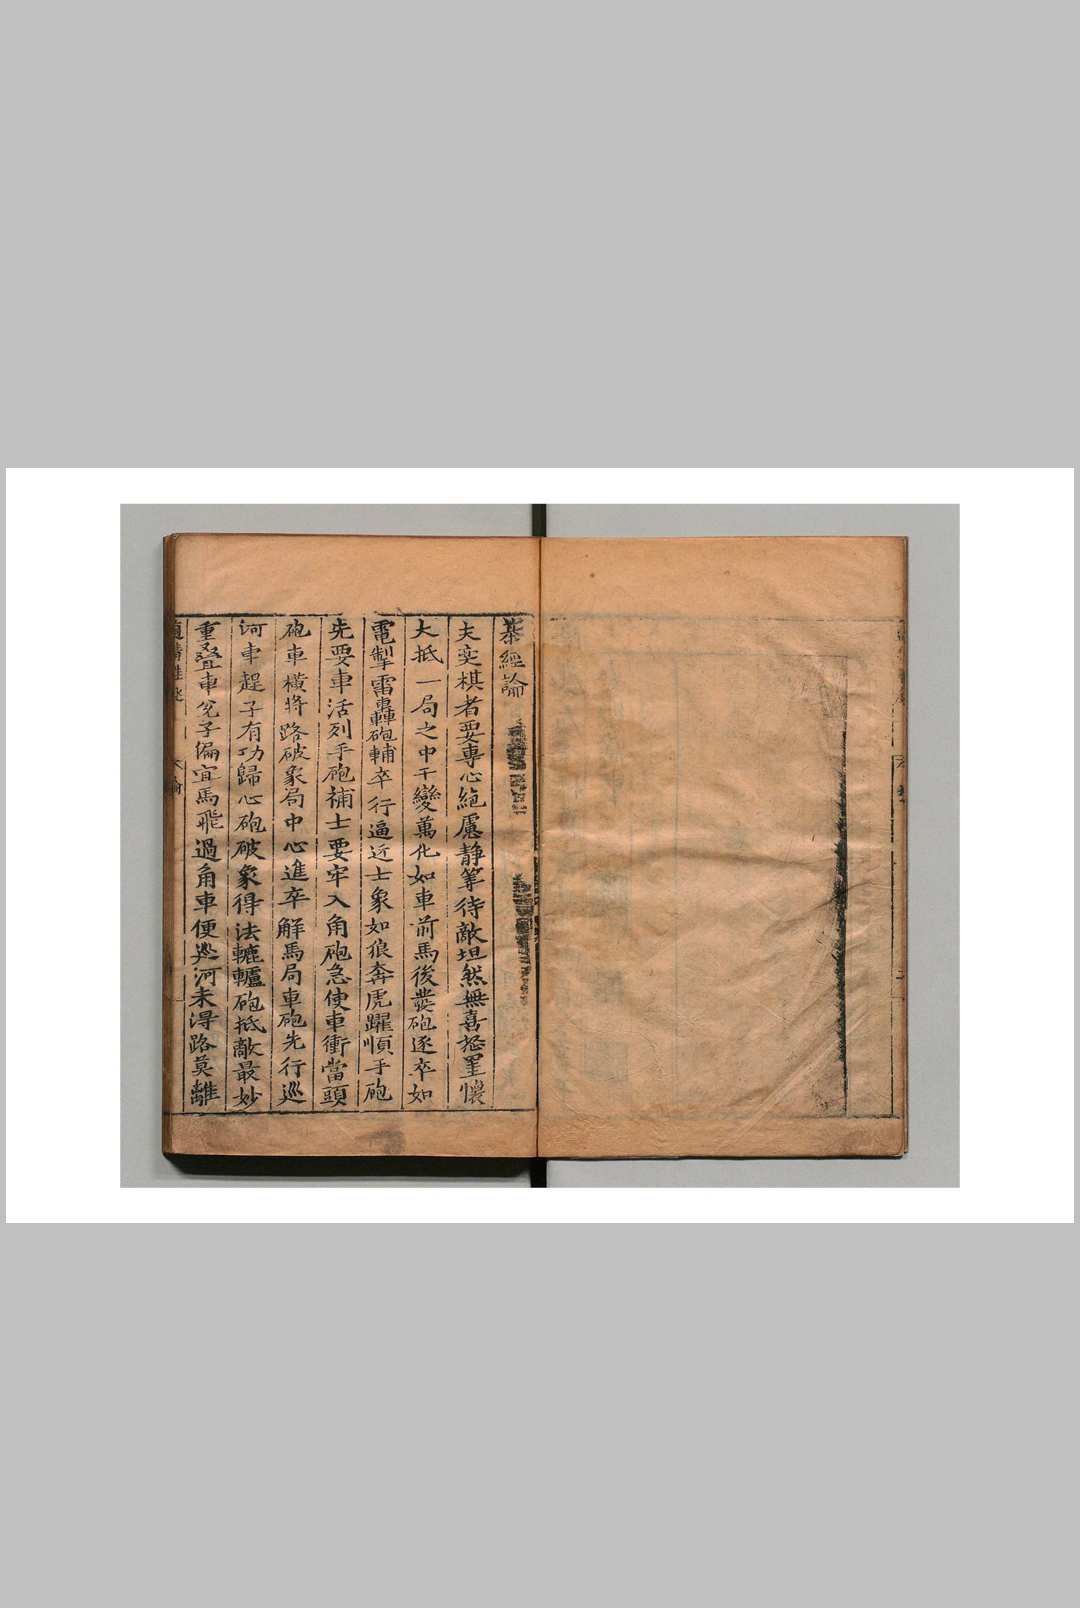 棊經論
夫奕棋者要專心絶慮静筭待敵坦然無喜怒罣懷
大抵一局之中千變萬化如車前馬後發砲逐卒如
電掣雷轟砲輔卒行逼近士象如狼奔虎躍順手砲
先要車活列手砲補士要牢入角砲急使車衝當頭
砲車橫將路破象局中心進卒解馬局車砲先行巡
河車趕子有功歸心砲破象得法轆轤砲抵敵最妙
重叠車兌子偏宜馬飛過角車便巡河未淂路莫離